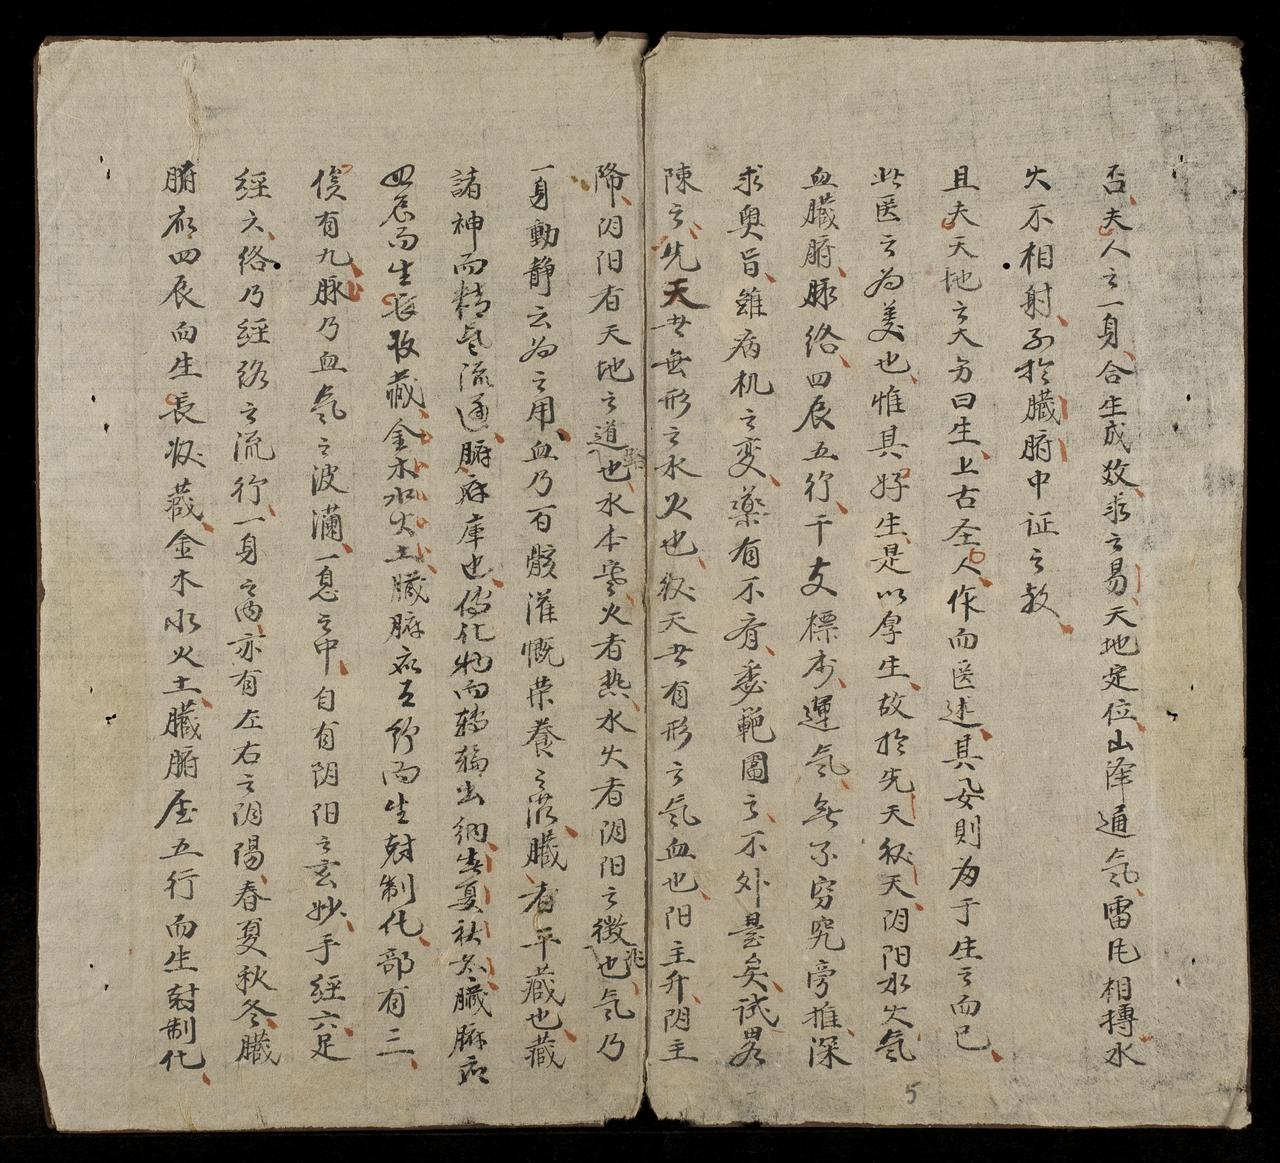 否夫人之一身合生成效求之易天地定位山澤通氣雷风相摶水
火不相射列於臟腑中证之教
且夫天地之大务曰生上古圣人作而医述其玅則为于生之而已
此医之为美也惟其好生是以厚生故於先天后天阴阳水火氣
血臟腑脉络四辰五行干支標本運氣無不窮究旁推深
求奥旨雖病机之变藥有不齐委範圍之不外是矣試畧
陳之先天廿無形之水火也后天廿有形之氣血也阳主升阴主
降阴阳者天地之道也水本寒火者热水火者阴阳之徵也氣乃
一身動静云为之用血乃百骸灌慨荣養之
臟者平藏也藏
諸神而精氣流通腑府庫也傳化物而轉輸出納春夏秋冬臟腑应
四辰而生長收藏金木水火土臟腑应五行而生尅制化部有三
候有九脉乃血氣之波瀾一息之中自有阴阳之玄妙手經六足
經六络乃經络之流行一身之内亦有左右之阴陽春夏秋冬臟
腑应四辰而生長收藏金木水火土臟腑应五行而生尅制化
兆
5